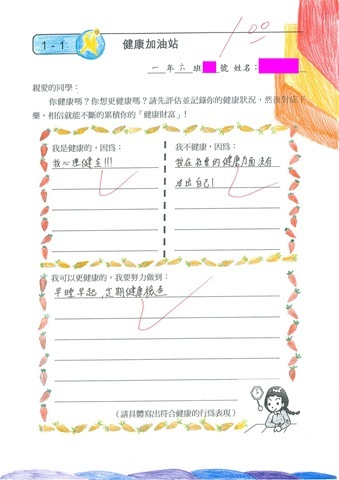 1-1 健康加油站 100
一年六班 號 姓名：
親愛的同學：
你健康嗎？你想更健康嗎？請先評估並記錄你的健康狀況，然後對症下
藥，相信就能不斷的累積你的「健康財富」！
我是健康的，因為：
我心理健全!!!
我不健康，因為：
我在 健康方面沒有
出自己!
我可以更健康的，我要努力做到：
早睡早起，定期健康檢查
（請具體寫出符合健康的行為表現）